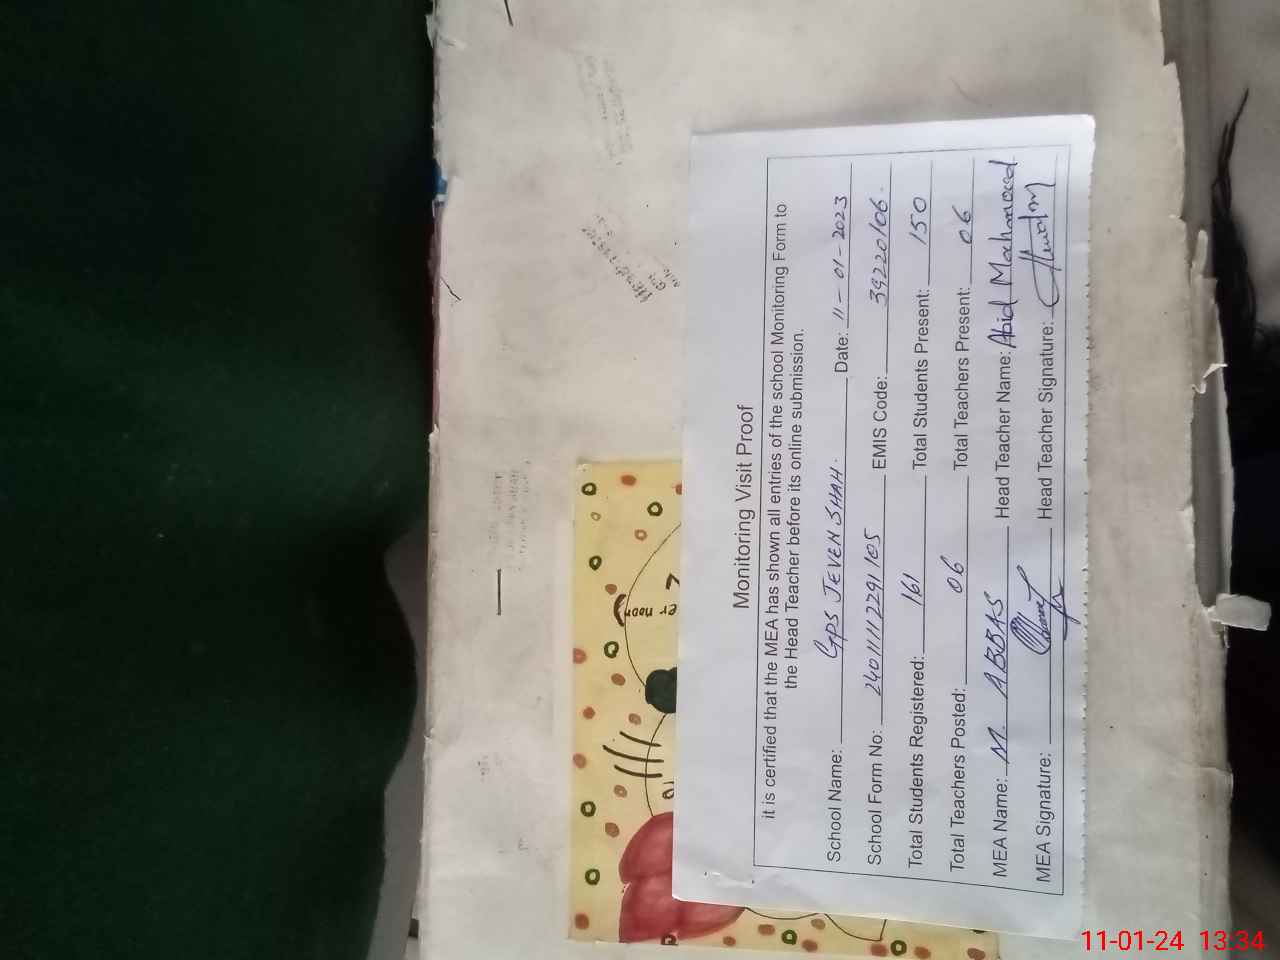 Monitoring Visit Proof
it is certified that the MEA has shown all entries of the school Monitoring Form to
the Head Teacher before its online submission.
School Name: GPS JEVEN SHAH. Date: 11-01-2023
School Form No: 24011112291105 EMIS Code: 39220106.
Total Students Registered: 161 Total Students Present: 150
Total Teachers Posted: 06 Total Teachers Present: 06
MEA Name: M. ABBAS Head Teacher Name: Abid Mahmood
MEA Signature: Head Teacher Signature:
er noon
11-01-24 13:34